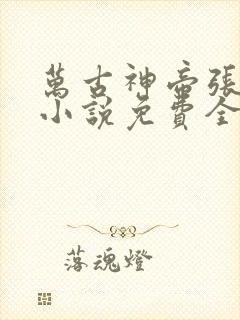 萬古神帝張
小說免費全
落魂燈